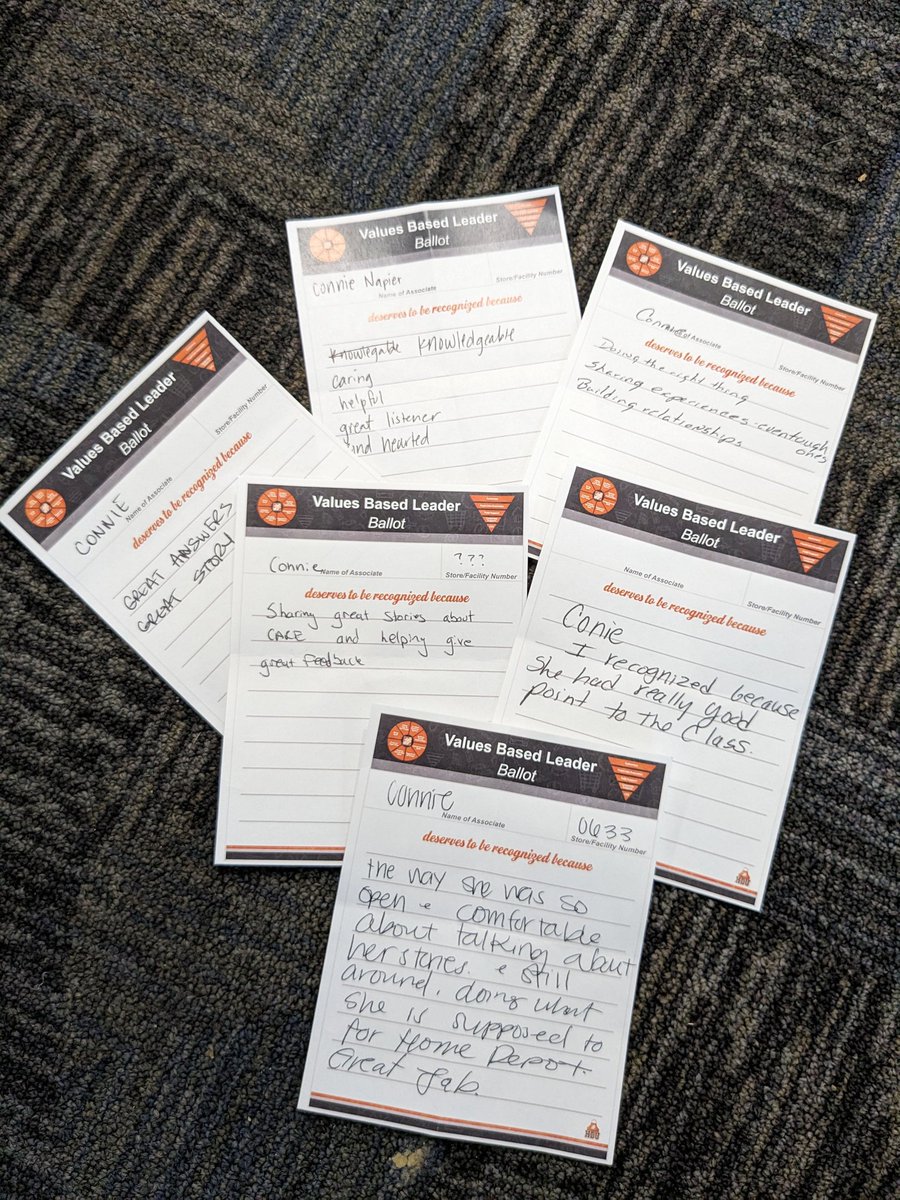 Values Based Leader
Ballot
Connie Napier
Name of Associate
Store/Facility Number
deserves to be recognized because
Knowlegable Knowledgeable
caring
helpful
great listener
ind hearted
Values Based Leader
Ballot
Connie
Name of Associate
Store/Facility Number
deserves to be recognized because
Doing the right thing
Sharing experiences - even tough
ones
Building relationships
Values Based Leader
Ballot
CONNIE
Name of Associate
Store/Facility Number
deserves to be recognized because
GREAT ANSWERS
GREAT STORY
Values Based Leader
Ballot
Connie
???
Name of Associate
Store/Facility Number
deserves to be recognized because
Sharing great stories about
CARE and helping give
great feedback
Values Based Leader
Ballot
Name of Associate
Store/Facility Number
deserves to be recognized because
Conie
I recognized because
She had really good
point to the Class.
Values Based Leader
Ballot
Connie
0633
Name of Associate
Store/Facility Number
deserves to be recognized because
the way she was so
open & comfortable
about talking about
her stories. & still
around. doing what
she is supposed to
for Home Depot.
Great Job.